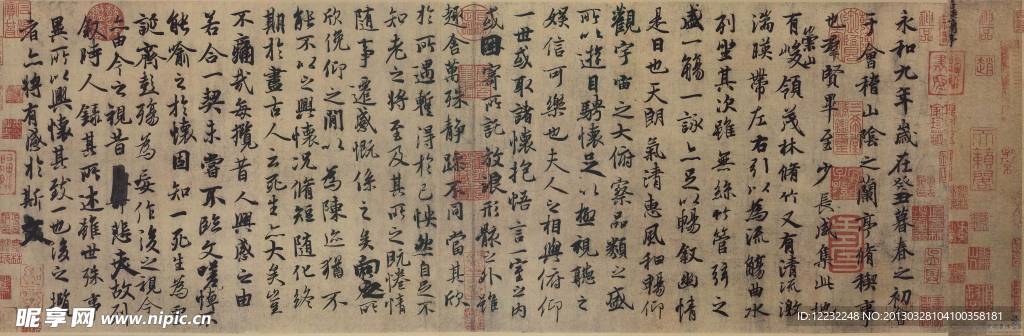 永和九年歲在癸丑暮春之初
于會稽山陰之蘭亭脩稧事
也羣賢畢至少長咸集此地
有崇山峻領茂林脩竹又有清流激
湍暎帶左右引以為流觴曲水
列坐其次雖無絲竹管弦之
盛一觴一詠亦足以暢敘幽情
是日也天朗氣清惠風和暢仰
觀宇宙之大俯察品類之盛
所以遊目騁懷足以極視聽之
娛信可樂也夫人之相與俯仰
一世或取諸懷抱悟言一室之內
或因寄所託放浪形骸之外雖
趣舍萬殊靜躁不同當其欣
於所遇暫得於己怏然自足不
知老之將至及其所之既惓情
隨事遷感慨係之矣向之所
欣俛仰之閒以為陳迹猶不
能不以之興懷況脩短隨化終
期於盡古人云死生亦大矣豈
不痛哉每攬昔人興感之由
若合一契未嘗不臨文嗟悼不
能喻之於懷固知一死生為虛
誕齊彭殤為妄作後之視今
亦由今之視昔悲夫故列
敘時人錄其所述雖世殊事
異所以興懷其致一也後之攬
者亦將有感於斯文
昵享网
www.nipic.cn
ID:12232248 NO:20130328104100358181